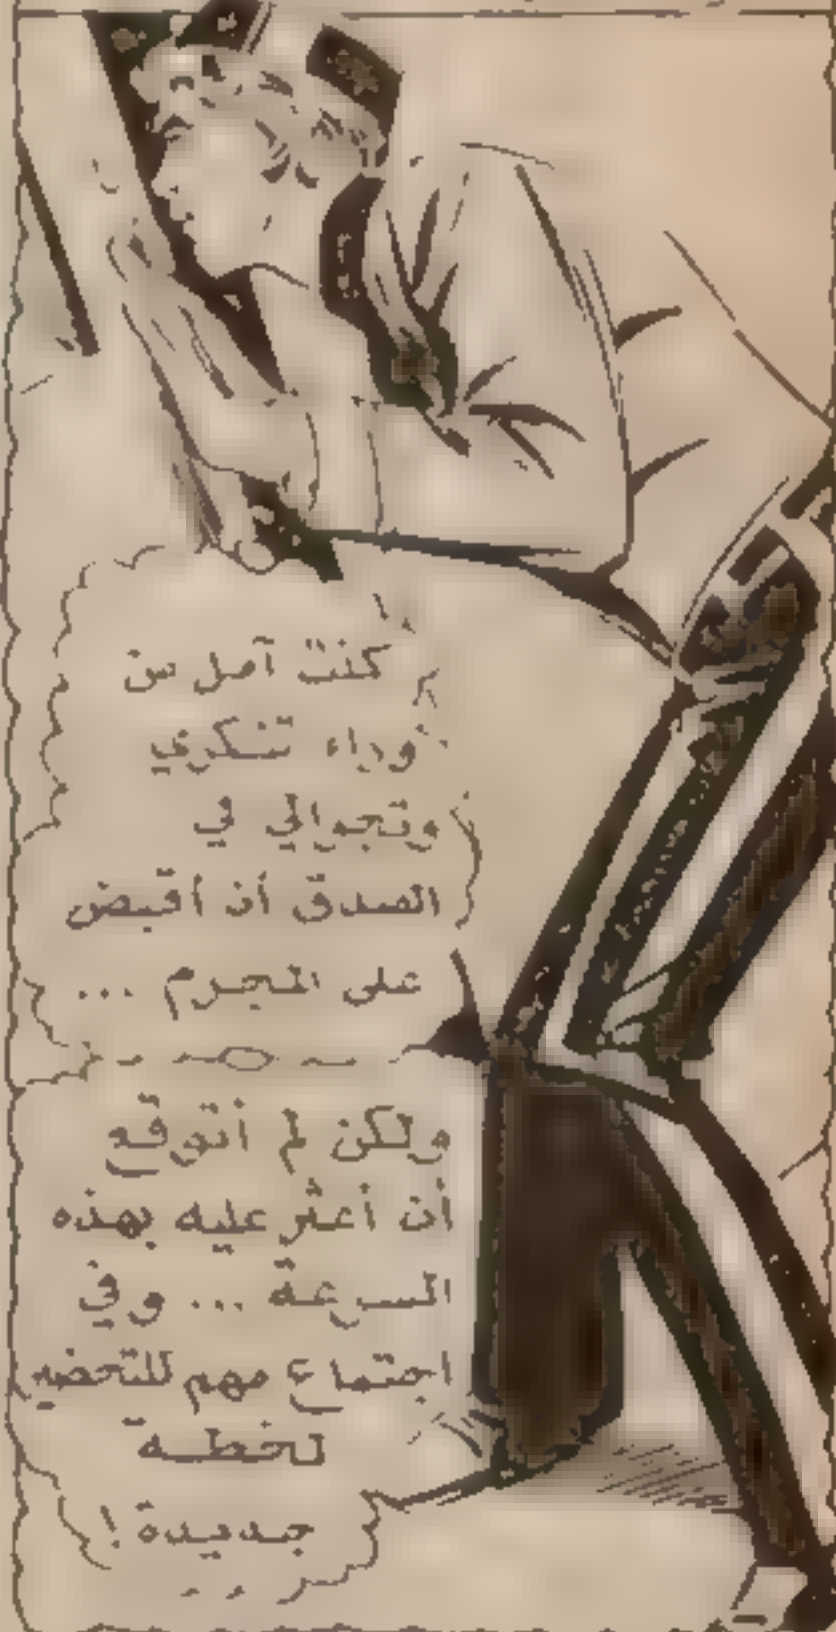 كنت آمل من
وراء تنكري
وتجوالي في
الفندق أن أقبض
على المجرم ...
ولكن لم أتوقع
أن أعثر عليه بهذه
السرعة ... وفي
اجتماع مهم للتحضير
لخطة
جديدة !